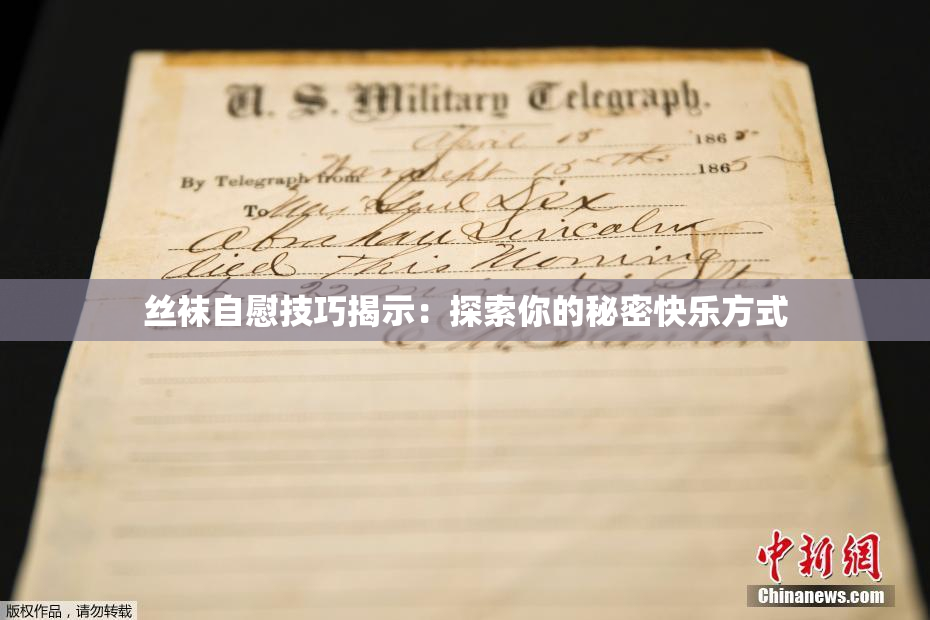 U. S. Military Telegraph.
April 15 1865
By Telegraph from War Dept 15th 1865
To Maj Genl Dix
Abraham Lincoln
died This Morning
22 minutes after
丝袜自慰技巧揭示：探索你的秘密快乐方式
E. M. Stanton
中新网
Chinanews.com
版权作品，请勿转载